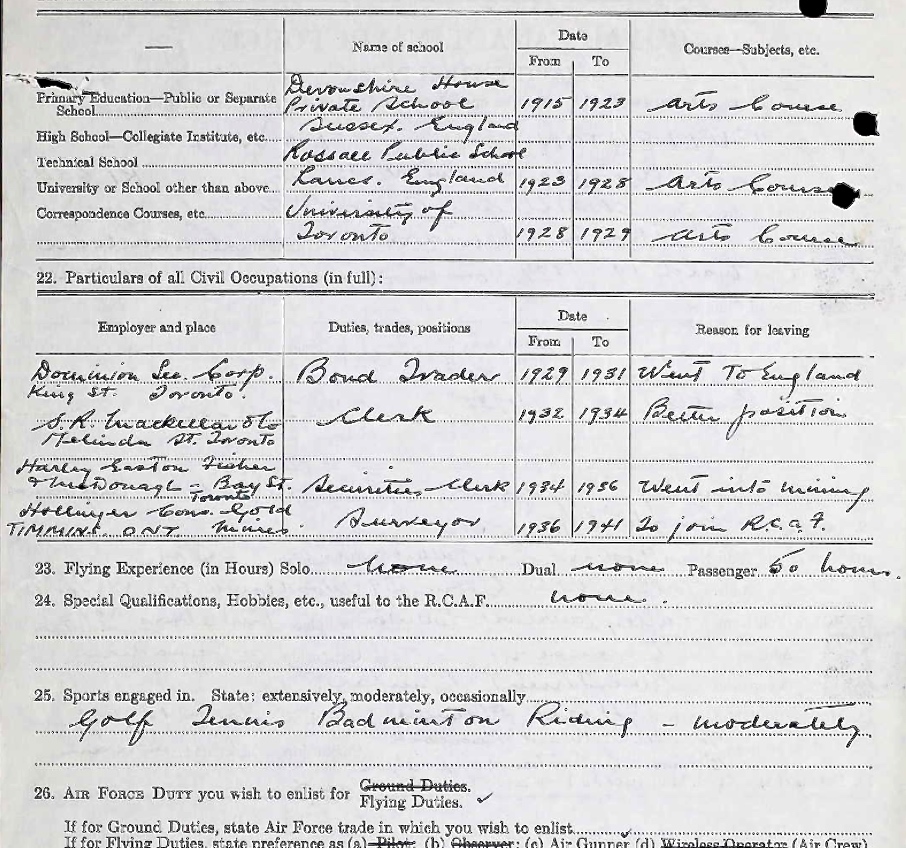 — Name of school Date Courses—Subjects, etc.
From To
Devonshire House
Primary Education—Public or Separate School Private School 1915 1923 Arts Course
Sussex. England
High School—Collegiate Institute, etc.
Technical School Rossall Public School
University or School other than above Lancs. England 1923 1928 Arts Course
Correspondence Courses, etc. University of
Toronto 1928 1929 Arts Course
22. Particulars of all Civil Occupations (in full):
Employer and place Duties, trades, positions Date Reason for leaving
From To
Dominion Sec. Corp. Bond Trader 1929 1931 Went To England
King St. Toronto.
S. R. Mackellar & Co Clerk 1932 1934 Better position
Melinda St. Toronto
Harley Easton Fisher
& McDonagh - Bay St. Securities Clerk 1934 1936 Went into mining
Toronto
Hollinger Cons. Gold
TIMMINS. ONT Mines. Surveyor 1936 1941 To join R.C.A.F.
23. Flying Experience (in Hours) Solo none Dual none Passenger 50 hours.
24. Special Qualifications, Hobbies, etc., useful to the R.C.A.F. none.
25. Sports engaged in. State: extensively, moderately, occasionally
Golf Tennis Badminton Riding - moderately
26. AIR FORCE DUTY you wish to enlist for Ground Duties.
Flying Duties. ✓
If for Ground Duties, state Air Force trade in which you wish to enlist
If for Flying Duties, state preference as (a) Pilot; (b) Observer; (c) Air Gunner (d) Wireless Operator (Air Crew)